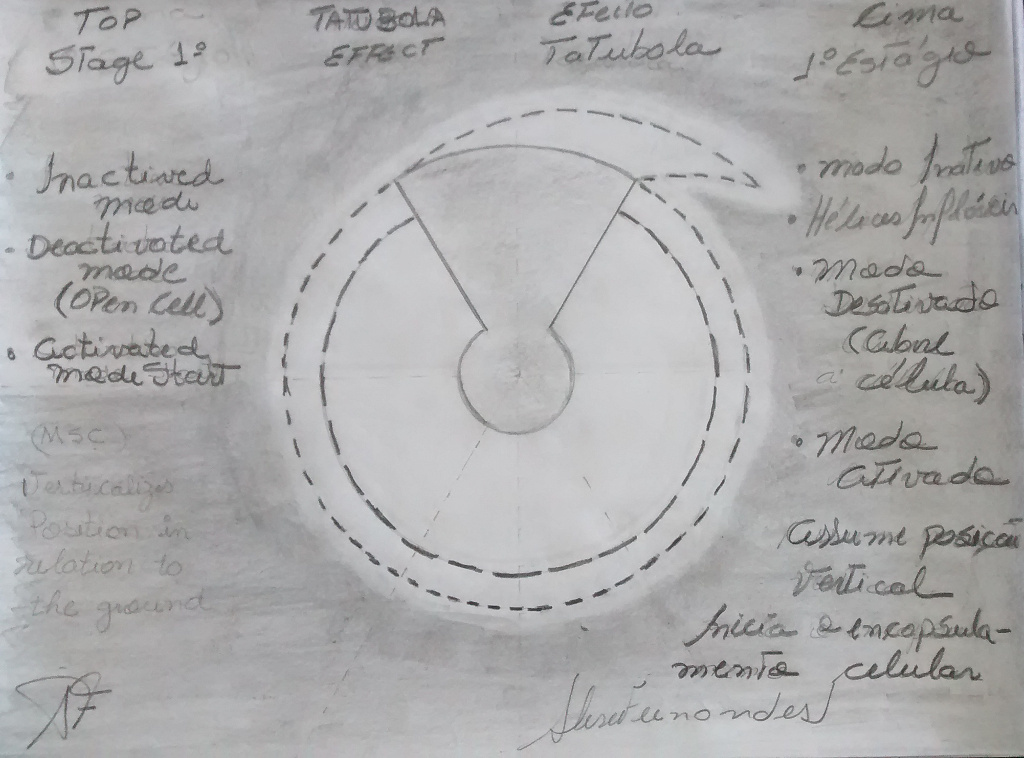 TOP
Stage 1º
TATUBOLA
EFFECT
EFeito
TaTubola
Cima
1º Estágio
• Inactived
mode
- Deactivated
mode
(OPen cell)
• activated
mode Start
(MSC)
Verticalizes
Position in
relation to
the ground
• modo Inativo
• Hélices
• Modo
Desativado
(Abre
a célula)
• Modo
Ativado
Assume posição
Vertical
Inicia o encapsula-
mento celular